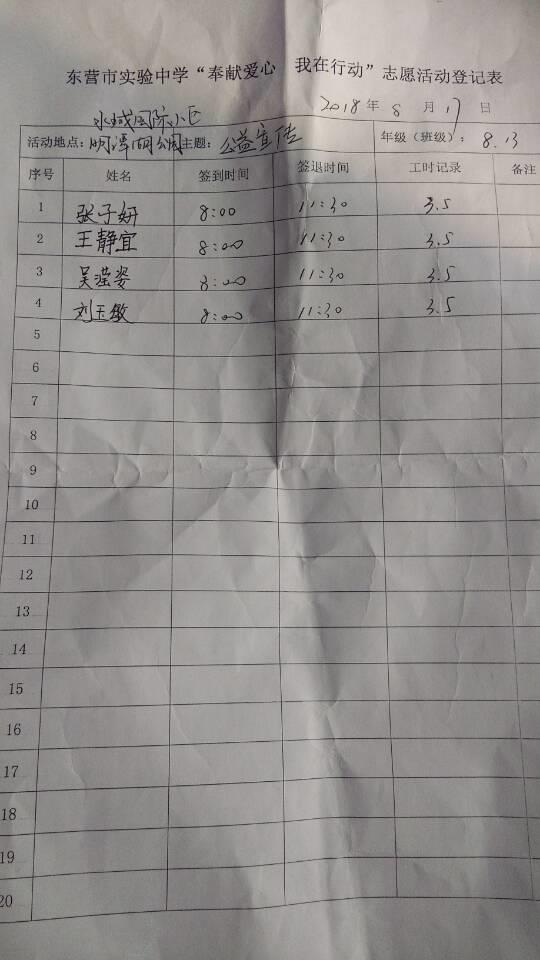 东营市实验中学“奉献爱心 我在行动”志愿活动登记表
2018年8月17日
水城国际小区
活动地点：明潭湖公园主题：公益宣传 年级（班级）：8.13
序号 姓名 签到时间 签退时间 工时记录 备注
1 张子妍 8:00 11:30 3.5
2 王静宜 8:00 11:30 3.5
3 吴滢姿 8:00 11:30 3.5
4 刘玉敏 8:00 11:30 3.5
5
6
7
8
9
10
11
12
13
14
15
16
17
18
19
20